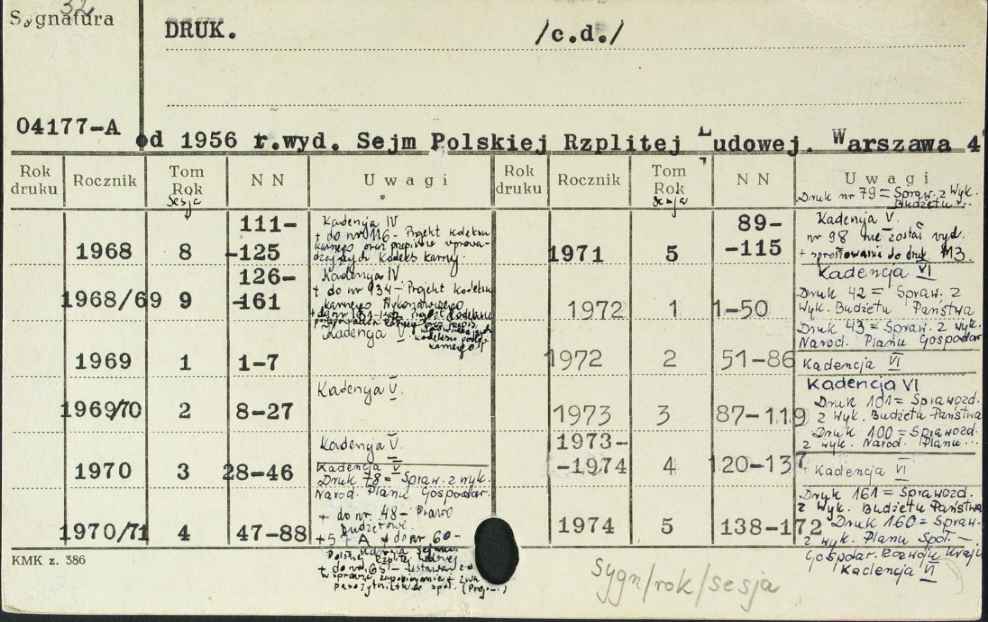 32
Sygnatura
DRUK. /c.d./
04177-A
od 1956 r.wyd. Sejm Polskiej Rzplitej Ludowej. Warszawa 4°
Rok druku Rocznik Tom Rok sesja N N Uwagi
1968 8 111-
-125 Kadenja IV
+ do nr 116 - Projekt Kodeksu
karnego oraz przepisów wprowa-
dzających Kodeks karny.
1968/69 9 126-
-161 Kadenya IV
+ do nr 934 - Projekt Kodeksu
karnego Wykonawczego
Kadenya V
1969 1 1-7
1969/70 2 8-27 Kadenya V.
1970 3 28-46 Kadenya V.
Kadencja V
Druk 78 = Spraw. z wyk.
Narod. Planu Gospodar.
1970/71 4 47-88 + do nr 48 - Prawo
budżetowe
+5 + A + do nr 60-
Rok druku Rocznik Tom Rok sesja N N Uwagi
Druk nr 79 = Spraw. z Wyk.
Budżetu...
1971 5 89-
-115 Kadencja V.
nr 98 nie został wyd.
+ sprostowanie do druk 113.
1972 1 1-50 Kadencja VI
Druk 42 = Spraw. z
Wyk. Budżetu Państwa
Druk 43 = Spraw. z wyk.
Narod. Planu Gospodar
1972 2 51-86 Kadencja VI
1973 3 87-119 Kadencja VI
Druk 101 = Sprawozd.
z Wyk. Budżetu Państwa
Druk 100 = Sprawozd.
z wyk. Narod. Planu...
1973-
-1974 4 120-137 + Kadencja VI
1974 5 138-172 Druk 161 = Sprawozd.
z Wyk. Budżetu Państwa
Druk 160 = Spraw.
z wyk. Planu Społ.-
Gospodar. Rozwoju Kraju
Kadencja VI
KMK z. 386
Sygn/rok/sesja